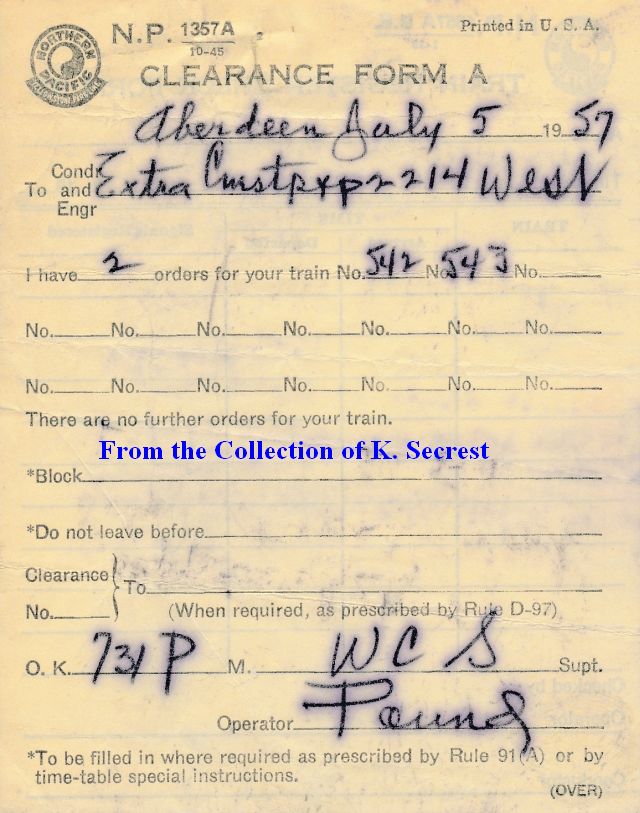 NORTHERN PACIFIC
YELLOWSTONE PARK LINE
N.P. 1357A 2
10-45
Printed in U. S. A.
CLEARANCE FORM A
Aberdeen July 5 1957
To Condr and Engr Extra Cmstpxp 2214 West
I have 2 orders for your train No. 542 No. 543 No.
No. No. No. No. No. No. No.
No. No. No. No. No. No. No.
There are no further orders for your train.
From the Collection of K. Secrest
*Block
*Do not leave before
Clearance No. } To
(When required, as prescribed by Rule D-97)
O. K. 731 P M. W C S Supt.
Operator Pound
*To be filled in where required as prescribed by Rule 91(A) or by
time-table special instructions.
(OVER)